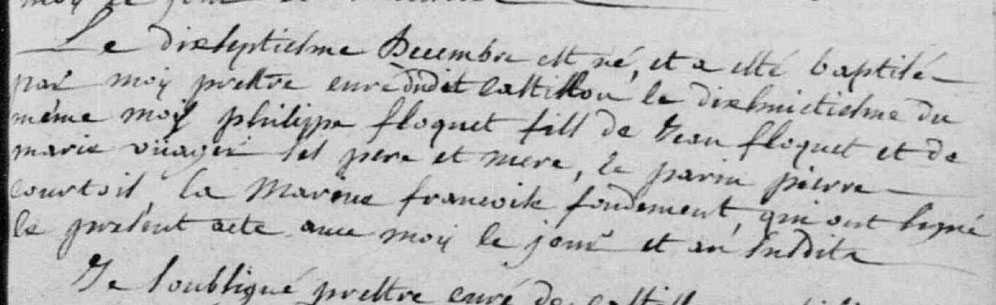 moy le jour
Le dixseptiesme Decembre est né, et a esté baptisé
par moy prestre curé dudit Castillon le dixhuictiesme du
même mois philippe floquet fils de Jean floquet et de
marie ses pere et mere, le parin pierre
courtois, la Marene francoise fondement, qui ont signé
le present acte avec moy le jour et an susdits
Je soubsigné prestre curé de